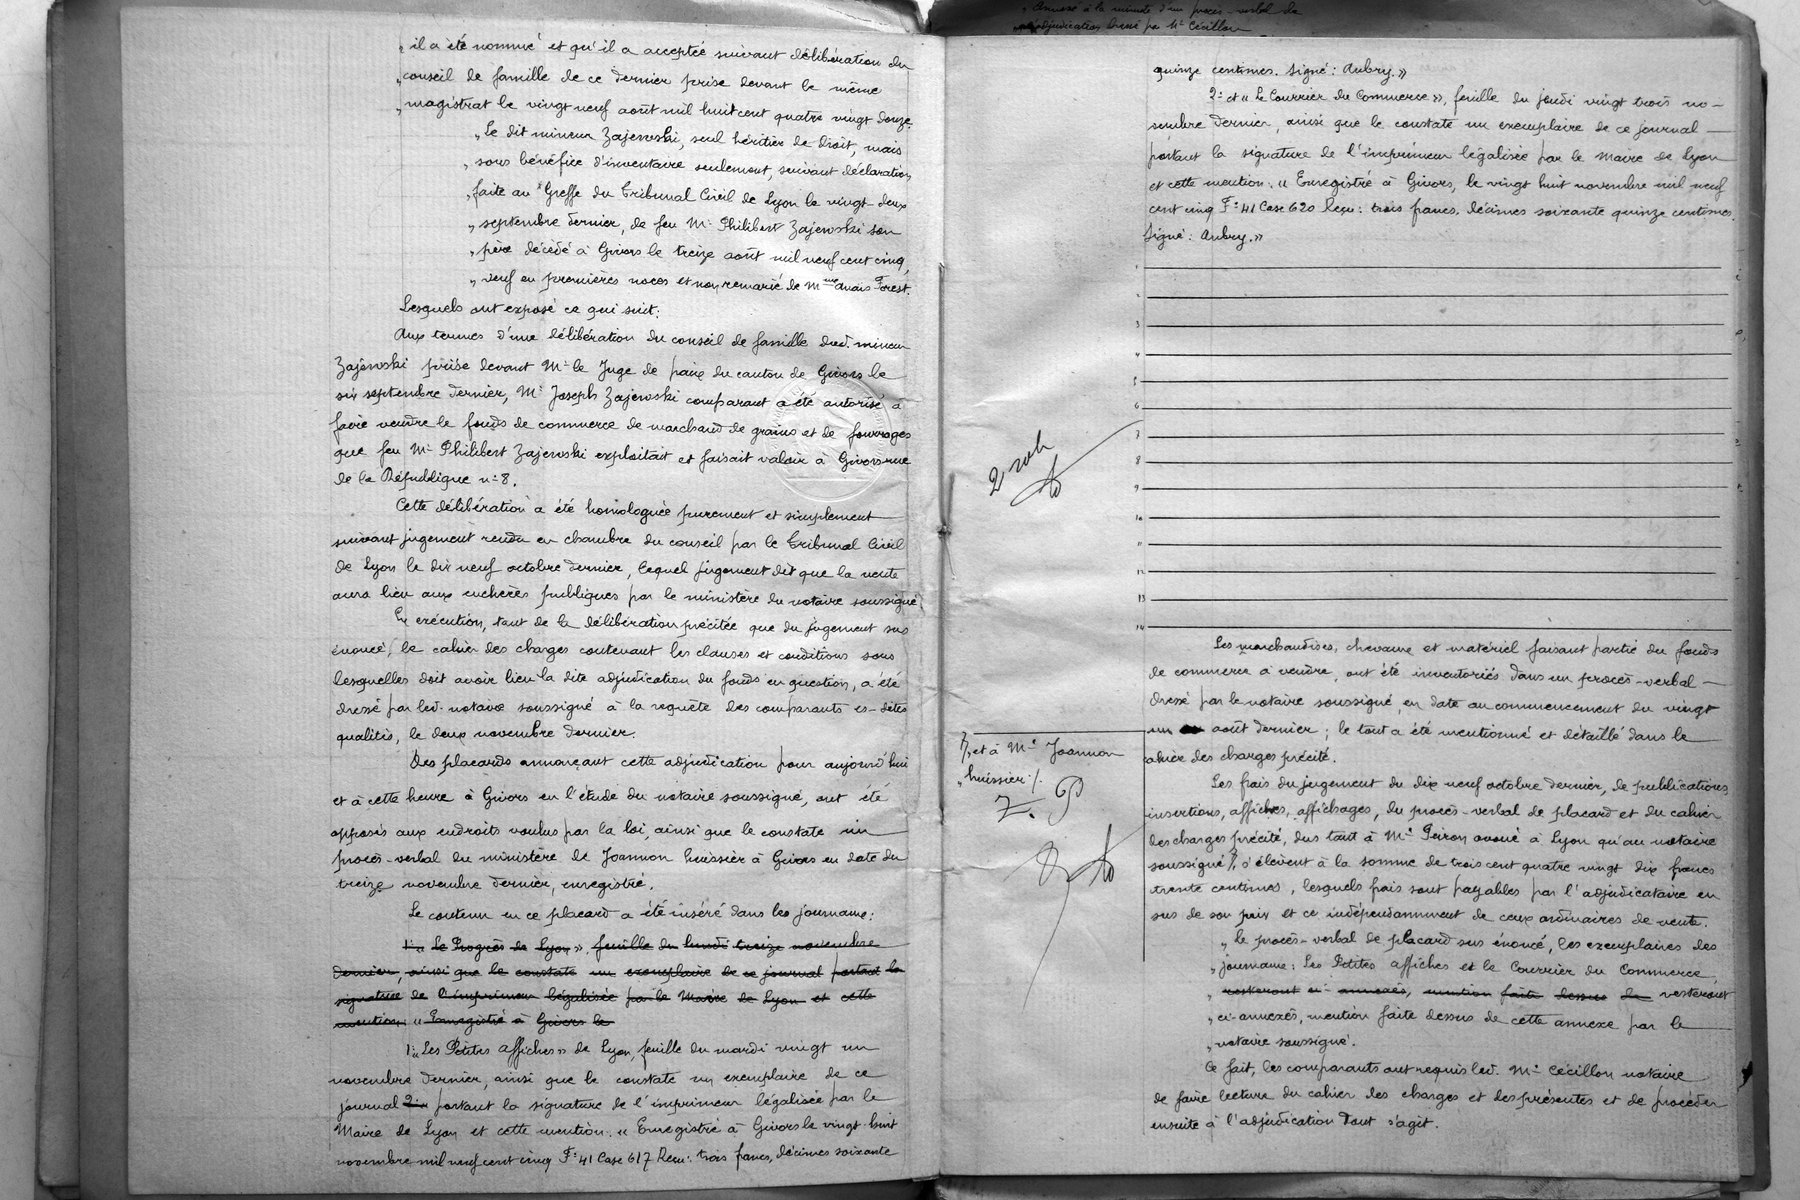 „ il a été nommé et qu'il a acceptée suivant délibération du
„ conseil de famille de ce dernier prise devant le même
„ magistrat le vingt neuf août mil huit cent quatre vingt douze.
„ Le dit mineur Zajewski, seul héritier de droit, mais
„ sous bénéfice d'inventaire seulement, suivant déclaration
„ faite au Greffe du Tribunal Civil de Lyon le vingt-deux
„ septembre dernier, de feu Mr Philibert Zajewski son
„ père décédé à Givors le treize août mil neuf cent cinq,
„ veuf en premières noces et non remarié de Mme Anaïs Forest.
Lesquels ont exposé ce qui suit:
Aux termes d'une délibération du conseil de famille dud. mineur
Zajewski prise devant Mr le Juge de paix du canton de Givors le
six septembre dernier, Mr Joseph Zajewski comparant a été autorisé à
faire vendre le fonds de commerce de marchand de grains et de fourrages
que feu Mr Philibert Zajewski exploitait et faisait valoir à Givors rue
de la République n° 8.
Cette délibération a été homologuée purement et simplement
suivant jugement rendu en chambre du conseil par le Tribunal Civil
de Lyon le dix neuf octobre dernier, lequel jugement dit que la vente
aura lieu aux enchères publiques par le ministère du notaire soussigné
En exécution, tant de la délibération précitée que du jugement sus
énoncé, le cahier des charges contenant les clauses et conditions sous
lesquelles doit avoir lieu la dite adjudication du fonds en question, a été
dressé par led. notaire soussigné à la requête des comparants es-dites
qualités, le deux novembre dernier.
Des placards annonçant cette adjudication pour aujourd'hui
et à cette heure à Givors en l'étude du notaire soussigné, ont été
apposés aux endroits voulus par la loi, ainsi que le constate un
procès-verbal du ministère de Joannon huissier à Givors en date du
treize novembre dernier, enregistré.
Le contenu en ce placard a été inséré dans les journaux:
1° « Le Progrès de Lyon », feuille du lundi treize novembre
dernier, ainsi que le constate un exemplaire de ce journal portant la
signature de l'imprimeur légalisée par le Maire de Lyon et cette
mention: « Enregistré à Givors le
1° « Les Petites Affiches » de Lyon, feuille du mardi vingt un
novembre dernier, ainsi que le constate un exemplaire de ce
journal portant la signature de l'imprimeur légalisée par le
Maire de Lyon et cette mention. « Enregistré à Givors le vingt-huit
novembre mil neuf cent cinq F° 41 Case 617 Reçu: trois francs, décimes soixante
„ Annexé à la minute d'un procès-verbal de
adjudication dressé par Me Cécillon
quinze centimes. Signé: Aubry. »
2° et « Le Courrier du Commerce », feuille du jeudi vingt trois no-
vembre dernier, ainsi que le constate un exemplaire de ce journal
portant la signature de l'imprimeur légalisée par le Maire de Lyon
et cette mention: « Enregistré à Givors, le vingt huit novembre mil neuf
cent cinq F° 41 Case 620 Reçu: trois francs, décimes soixante quinze centimes.
Signé: Aubry. »
1
2
3
4
5
6
7
8
9
10
11
12
13
14
Les marchandises, chevaux et matériel faisant partie du fonds
de commerce à vendre, ont été inventoriés dans un procès-verbal
dressé par le notaire soussigné, en date au commencement du vingt
un août dernier; le tout a été mentionné et détaillé dans le
cahier des charges précité.
Les frais du jugement du dix neuf octobre dernier, de publications
insertions, affiches, affichages, du procès-verbal de placard et du cahier
des charges précité, dus tant à Me Peiron avoué à Lyon qu'au notaire
soussigné /, s'élèvent à la somme de trois cent quatre vingt dix francs
trente centimes, lesquels frais sont payables par l'adjudicataire en
sus de son prix et ce indépendamment de ceux ordinaires de vente.
„ Le procès-verbal de placard sus énoncé, les exemplaires des
„ journaux: Les Petites Affiches et le Courrier du Commerce
„ resteront ci-annexés, mention faite dessus de resteront
„ ci-annexés, mention faite dessus de cette annexe par le
„ notaire soussigné.
Ce fait, les comparants ont requis led. Me Cécillon notaire
de faire lecture du cahier des charges et des présentes et de procéder
ensuite à l'adjudication dont s'agit.
/, et à Me Joannon
„ huissier /.
Z. P